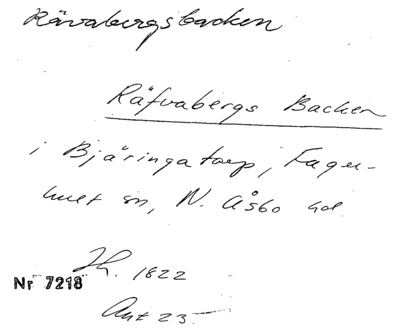 Rävabergsbacken
Räfvabergs Backen
i Bjäringatorp, Fager-
hult sn, N. Åsbo hd.
Jh. 1822
Nr 7218
Akt 23.